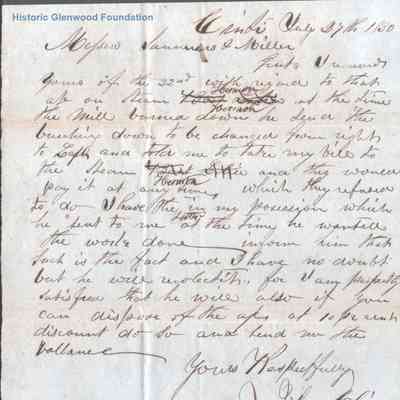 Historic Glenwood Foundation
Cinti July 27th 1850
Messrs Summers & Miller
Gents I
yours of the 22nd with regard to that
a/c on Steam Hermon at the time
the Mill burned down he send the
down to be changed from right
to Left and told me to take my bill to
the Steam Hermon and they would
pay it at any time, which they refused
to do I have the in my possession which
he sent to me at the time he wanted
the work done inform him that
such is the fact and I have no doubt
but he will recolect it, for I am perfectly
satisfied that he will also if you
can dispose of the a/c at 10 per cent
discount do so and send me the
ballance
Yours Respectfully